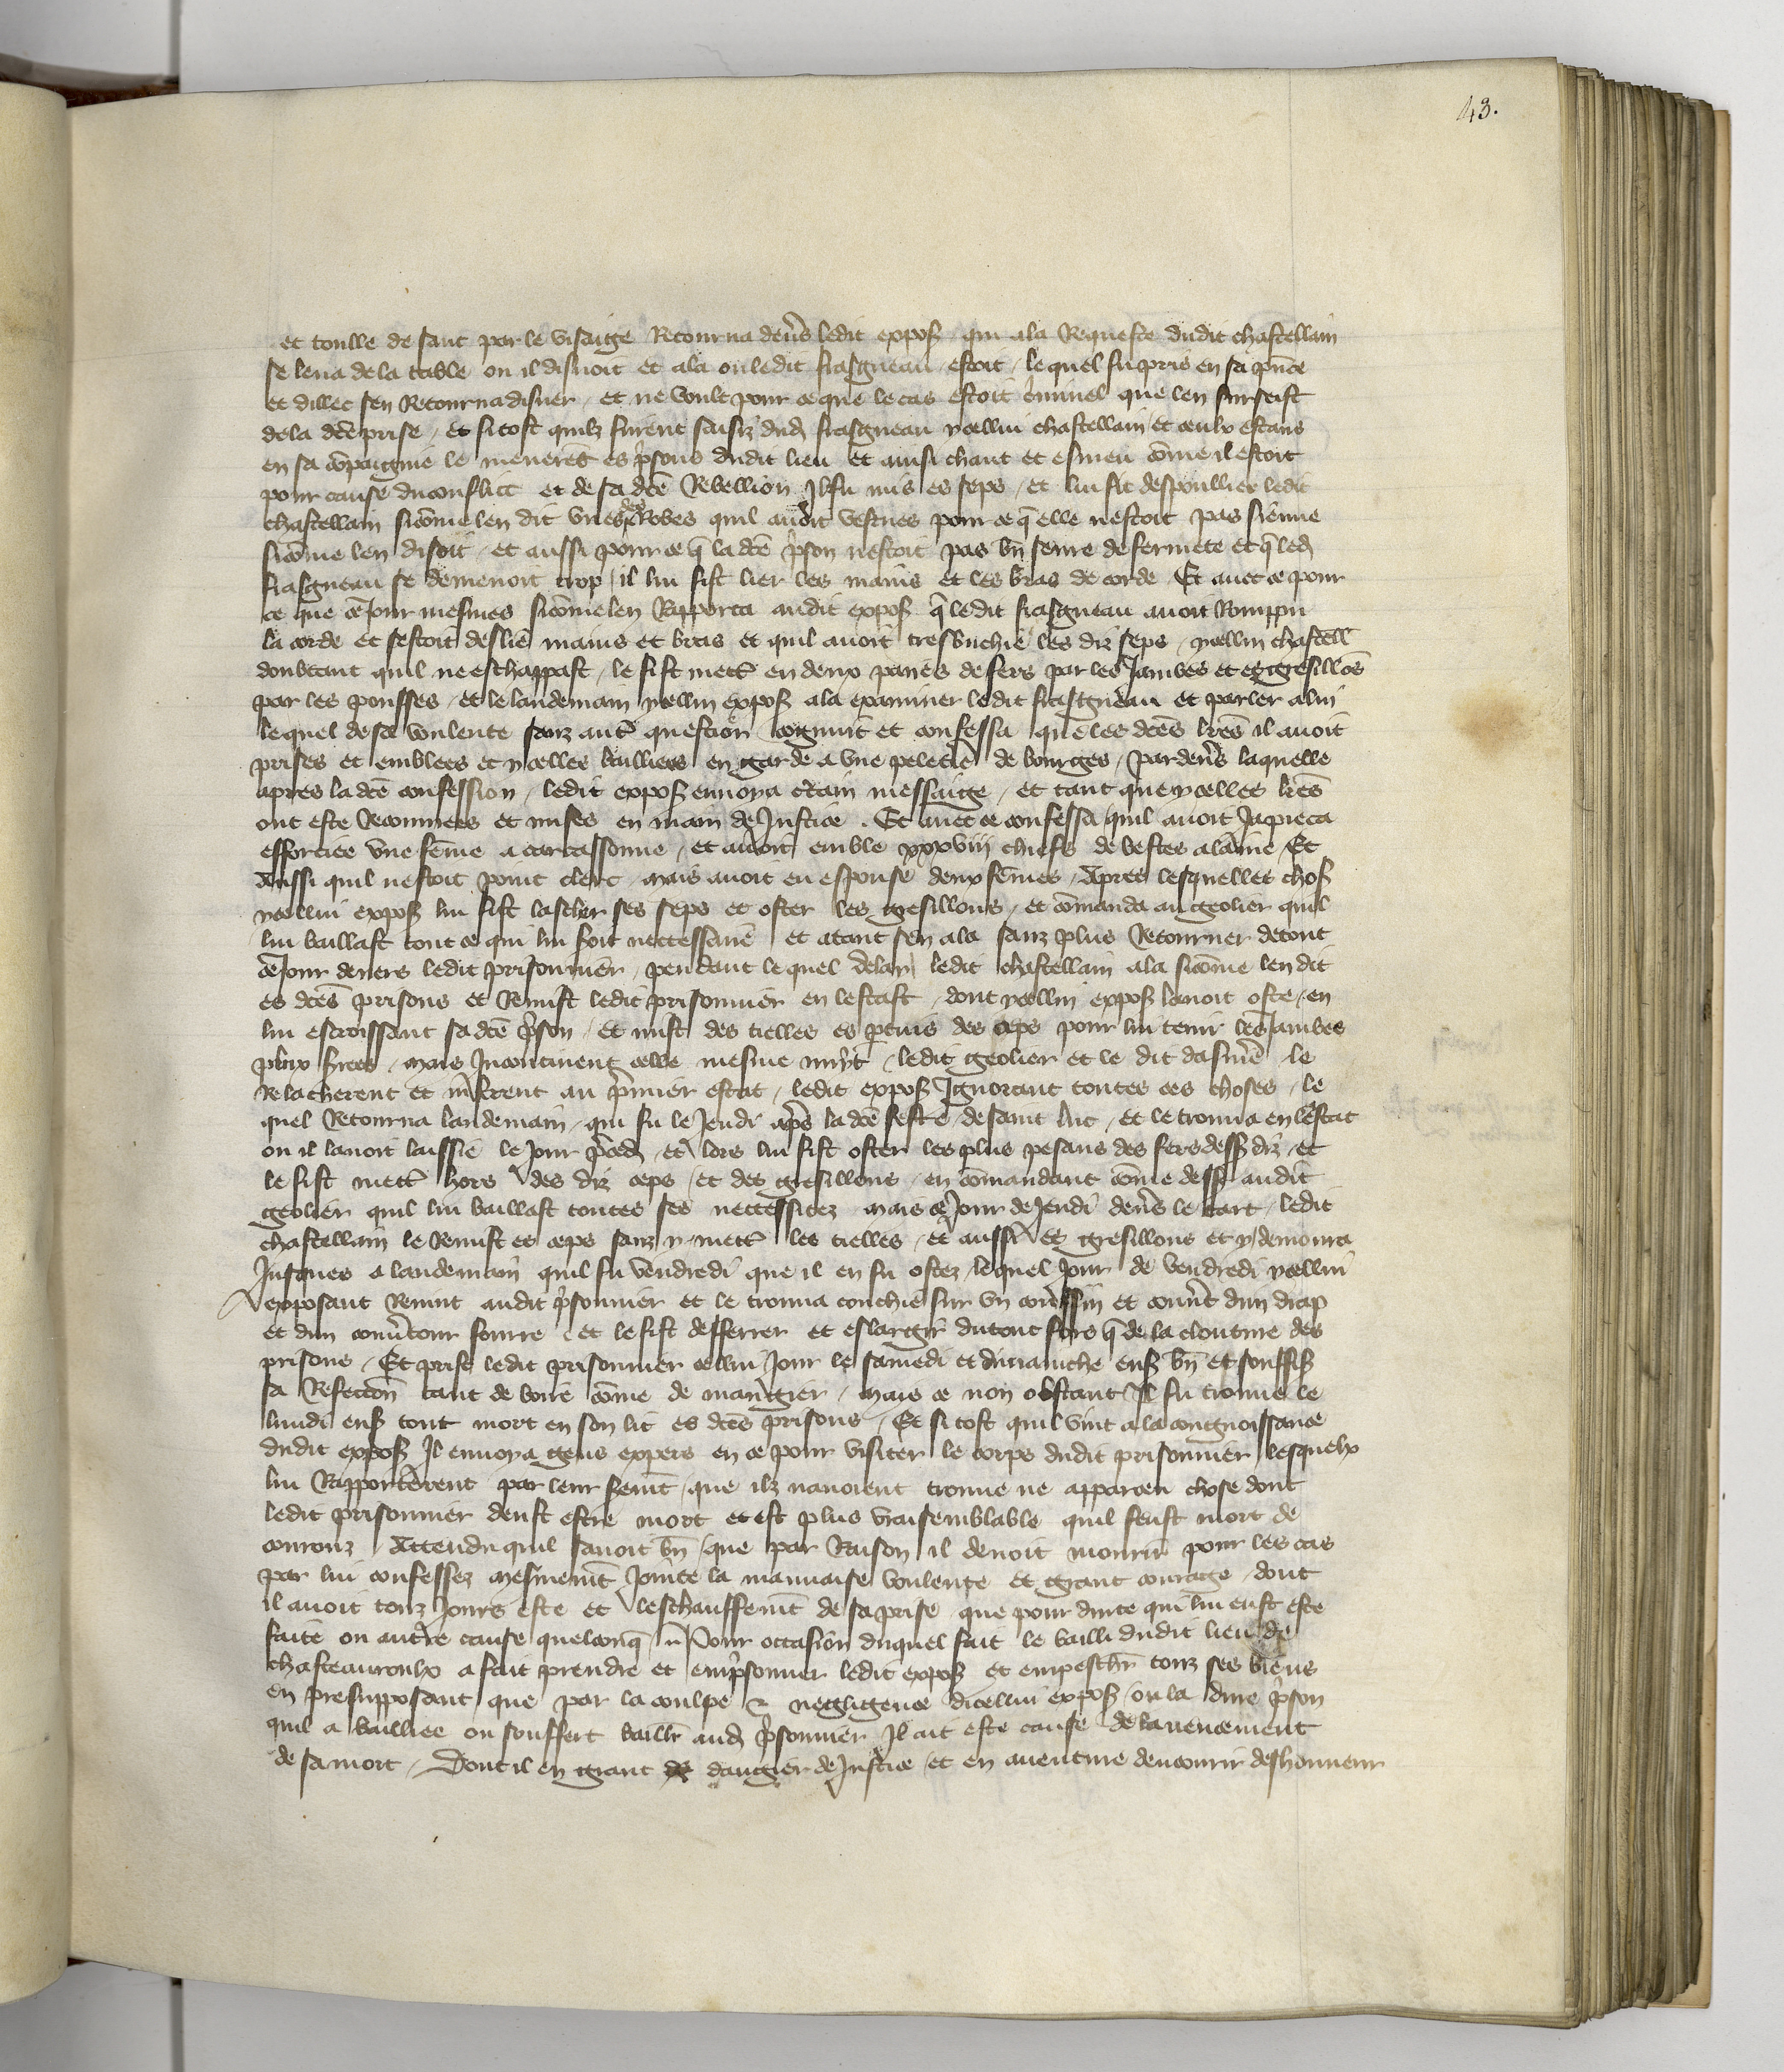 43.
et toulle de sanc par le visaige Retourna deũs ledit exposⱬ qui ala Requeste dudit chastellain
se leua de la table ou il disnoit et ala ou ledit frasgneau estoit / lequel fu pris en sa p̃nce
et dillec sen Retourna disner / et ne voult pour ce que le cas estoit c̃minel que len surseist
de la dc̃e prise / Et si tost quilz furent saisiz dud frasgneau ycellui chastellain et ceulx estans
en sa cõpaignie le menerẽt es p̃sons dudit lieu et ainsi chaut et esmeu cõme il estoit
pour cause du conflict et de sa dc̃e Rebellion Il fu mis es seps / et lui fit despoullier ledit
chastellain sicõme len dit vnes Robes quil auoit vestues pour ce q̃ elle nestoit pas sienne
sicõme len disoit / et aussi pour ce q̃ la dc̃e p̃son nestoit pas bñ seure de fermete et q̃ led
frasgneau se demenoit trop / il lui fist lier les mains et les bras de corde Et auec ce pour
ce que ce Jour mesmes sicõme len Rapporta audit exposⱬ q̃ ledit frasgneau auoit Romppu
la corde et sestoit deslie mains et bras et quil auoit tresbuchie les diz seps / ycellui chastell̃
doubtant quil ne eschappast / le fist mett̃ en deux paires de fers par les Jambes et es gresillõs
par les pousses / et le landemain ycellui exposⱬ ala examiner ledit frasgneau et parler a lui
lequel de sa voulente sanz aut̃ question congnut et confessa que les dc̃es lr̃es il auoit
prises et emblees et ycelles baillees en garde a vne peletier̃ de bourges / par deũs laquelle
apres la dc̃e confession / ledit exposⱬ enuoya c̃tain messaige / et tant que ycelles lr̃es
ont este Recouurees et mises en main de Justice . Et auec ce confessa quil auoit Ja pieca
efforciee vne fẽme a carcassonne / et auoit emble xxxviii chiefs de bestes a laine Et
Aussi quil nestoit point clerc / mais auoit eu espouse deux fẽmes / Apres lesquelles chosⱬ
ycellui exposⱬ lui fist lascher ses seps et oster les gresillons / et cõmanda au geolier quil
lui baillast tout ce qui lui soit neccessaire et atant sen ala sanz plus Retourner de tout
ce Jour deuers ledit prisonnier / pendant lequel delay ledit chastellain ala sicõme len dit
es dc̃es prisons et Remist ledit prisonnier en lestat / dont ycellui exposⱬ lauoit oste / en
lui escroissant sa dc̃e p̃son / Et mist des tielles es p̃tuis des ceps pour lui tenir les Jambes
plux / mais Incontinent celle mesme nuyt / ledit geolier et le dit le
Relacherent et mirent au p̃mier estat / ledit exposⱬ Ignorant toutes ces choses / le
quel Retourna landemain / qui fu le Jeudi ap̃s la dc̃e feste de saint luc / et le trouua en lestat
ou il lauoit laissie le Jour p̃ced / et lors lui fist oster les plus pesans des fers dessⱬ diz / et
le fist mett̃ hors des diz ceps / et des gresillons / en cõmandant cõme dessⱬ audit
geolier quil lui baillast toutes ses neccessitez mais ce Jour de Jeudi deũs le tart / ledit
chastellain le Remist es ceps sanz y mett̃ les tielles / et aussi es gresillons et y demoura
Jusques a landemain quil fu vendredi que il en fu ostez / lequel Jour de vendredi ycellui
exposant Reuint audit p̃sonnier et le trouua couchie sur vn coussin et couũt dun drap
et dun couũtour fourre / et le fist defferrer et eslargir du tout fors q̃ de la closture des
prisons / Et prist ledit prisonnier cellui Jour le samedi et dimanche ensⱬ bñ et souffisⱬ
sa Refection tant de boire cõme de mangier / mais ce non obstant Il fu trouue le
lundi ensⱬ tout mort en son lit es dc̃es prisons / Et si tost quil vint a la congnoissance
dudit exposⱬ Il enuoya gens expers en ce pour visiter le corps dudit prisonnier lesquelx
lui Rapporterent par leur serm̃t / que ilz nauoient trouue ne apparceu chose dont
ledit prisonnier deust estre mort et est plus vraisemblable quil feust mort de
courouz / Attendu quil sauoit bñ / que par Raison il deuoit mourir pour les cas
par lui confessez mesmem̃t Jointe la mauuaise voulente et grant courage / dont
il auoit touz Jours este et leschauffem̃t de sa prise que pour durte qui lui eust este
faite ou autre cause quelconq̃ / Pour occasion duquel fait le bailli dudit lieu de
chasteauroulx a fait prendre et emp̃sonner ledit exposⱬ et empeschr̃ touz ses biens
en presupposant que par la coulpe & negligence dicellui exposⱬ / ou la dure p̃son
quil a baillee ou souffert baillr̃ aud p̃sonnier Il ait este cause de lauencement
de sa mort / Dont il en grant dangier de Justice / et en auenture dencourir deshonneur